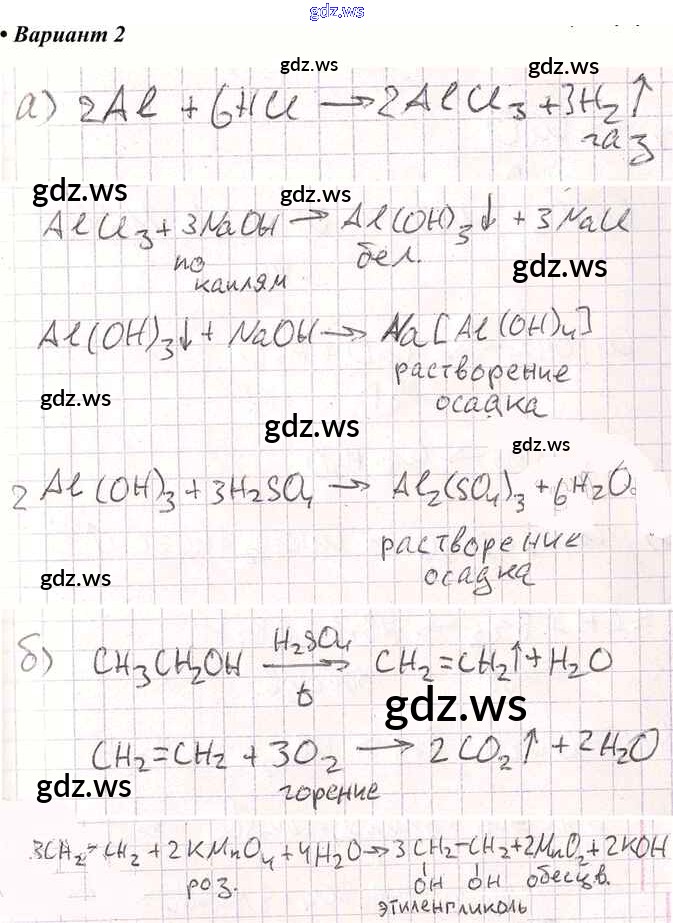 gdz.ws
• Вариант 2
gdz.ws gdz.ws
а) 2Al + 6HCl → 2AlCl₃ + 3H₂↑
газ
gdz.ws gdz.ws
AlCl₃ + 3NaOH → Al(OH)₃↓ + 3NaCl
по каплям бел.
gdz.ws
Al(OH)₃↓ + NaOH → Na[Al(OH)₄]
растворение
gdz.ws осадка
gdz.ws
gdz.ws
2Al(OH)₃ + 3H₂SO₄ → Al₂(SO₄)₃ + 6H₂O
растворение
gdz.ws осадка
б) CH₃CH₂OH —H₂SO₄, t→ CH₂=CH₂↑ + H₂O
gdz.ws
CH₂=CH₂ + 3O₂ → 2CO₂↑ + 2H₂O
gdz.ws горение
3CH₂=CH₂ + 2KMnO₄ + 4H₂O → 3CH₂–CH₂ + 2MnO₂ + 2KOH
роз. OH OH обесцв.
этиленгликоль